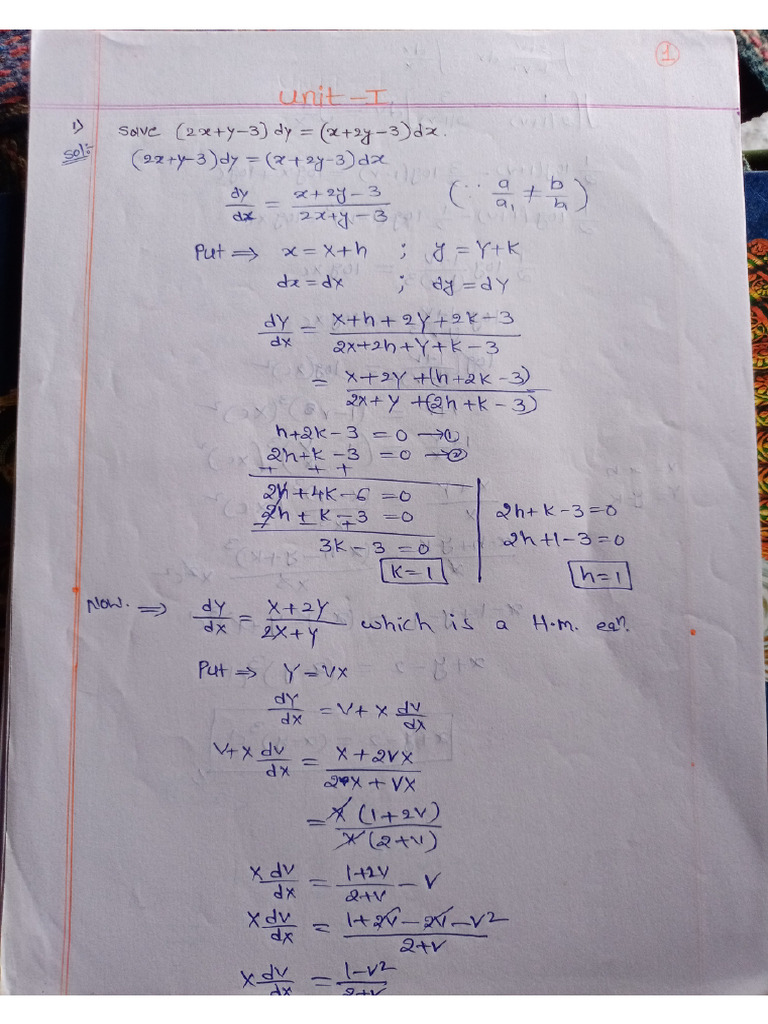 ①
Unit-I
1) Solve (2x+y-3)dy = (x+2y-3)dx.
Sol:- (2x+y-3)dy = (x+2y-3)dx
dy/dx = x+2y-3 / 2x+y-3 (∵ a/a₁ ≠ b/b₁)
Put ⇒ x = X+h ; y = Y+K
dx = dX ; dy = dY
dY/dX = X+h+2Y+2K-3 / 2X+2h+Y+K-3
= X+2Y+(h+2K-3) / 2X+Y+(2h+K-3)
h+2K-3 = 0 → ①
2h+K-3 = 0 → ②
+ + +
2h+4K-6 = 0
2h+K-3 = 0
- - +
3K-3 = 0
K=1
2h+K-3=0
2h+1-3=0
h=1
Now. ⇒ dY/dX = X+2Y / 2X+Y which is a H.M. eqn.
Put ⇒ Y=VX
dY/dX = V+X dV/dX
V+X dV/dX = X+2VX / 2X+VX
= X(1+2V) / X(2+V)
X dV/dX = 1+2V / 2+V - V
X dV/dX = 1+2V-2V-V² / 2+V
X dV/dX = 1-V² / 2+V